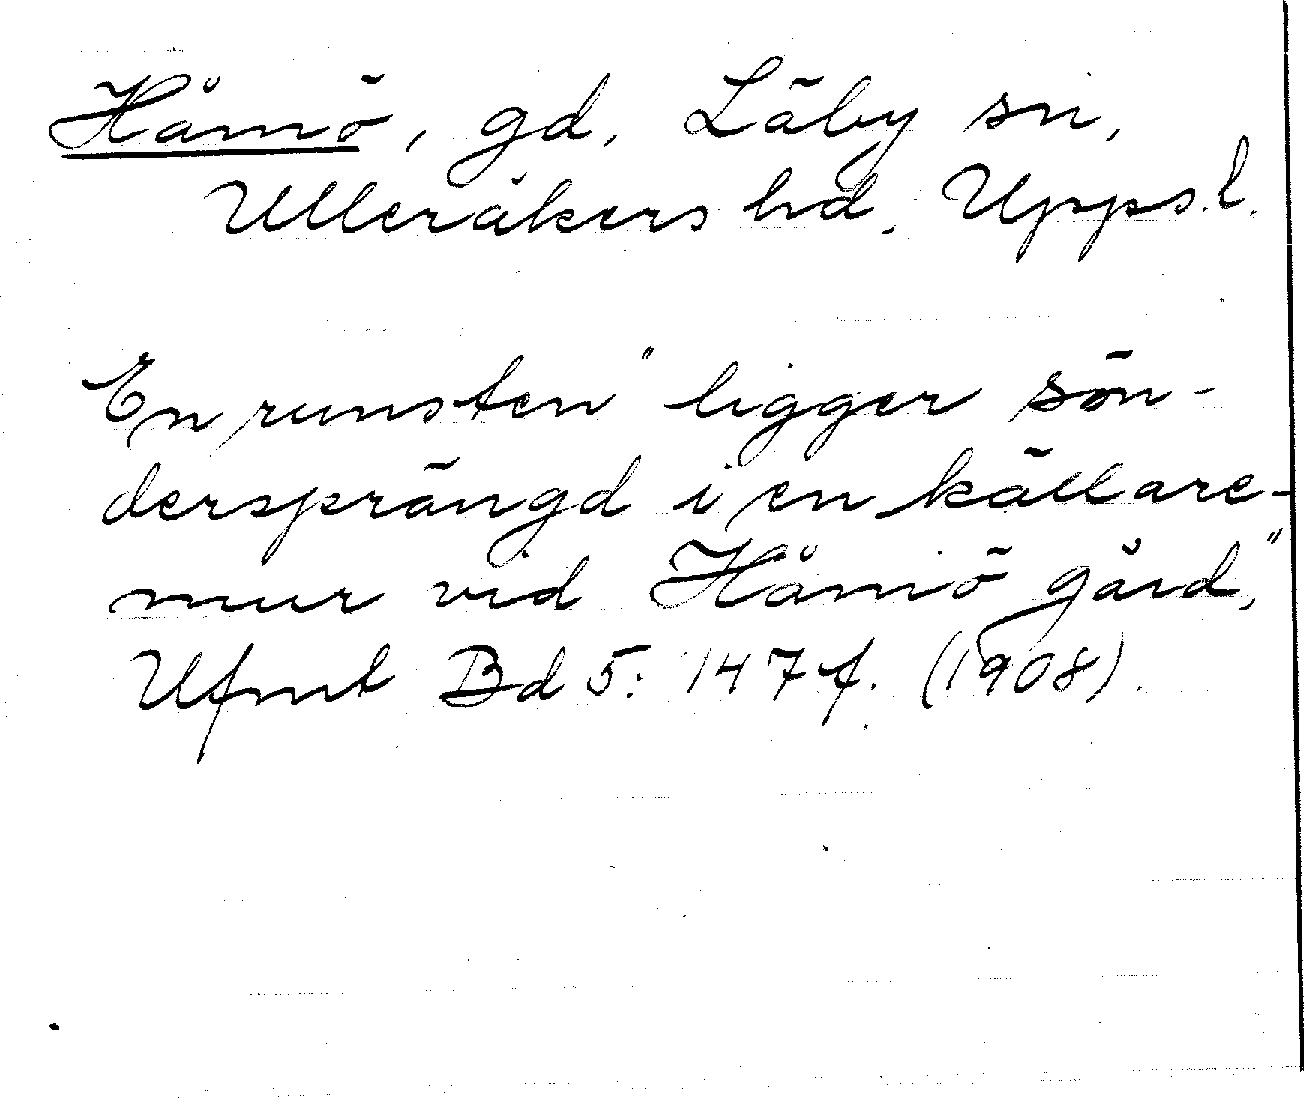 Håmö, gd, Läby sn,
Ulleråkers hd. Upps. l.
En runsten "ligger sön-
dersprängd i en källare-
mur vid Håmö gård,"
Ufmt Bd 5: 147 f. (1908).